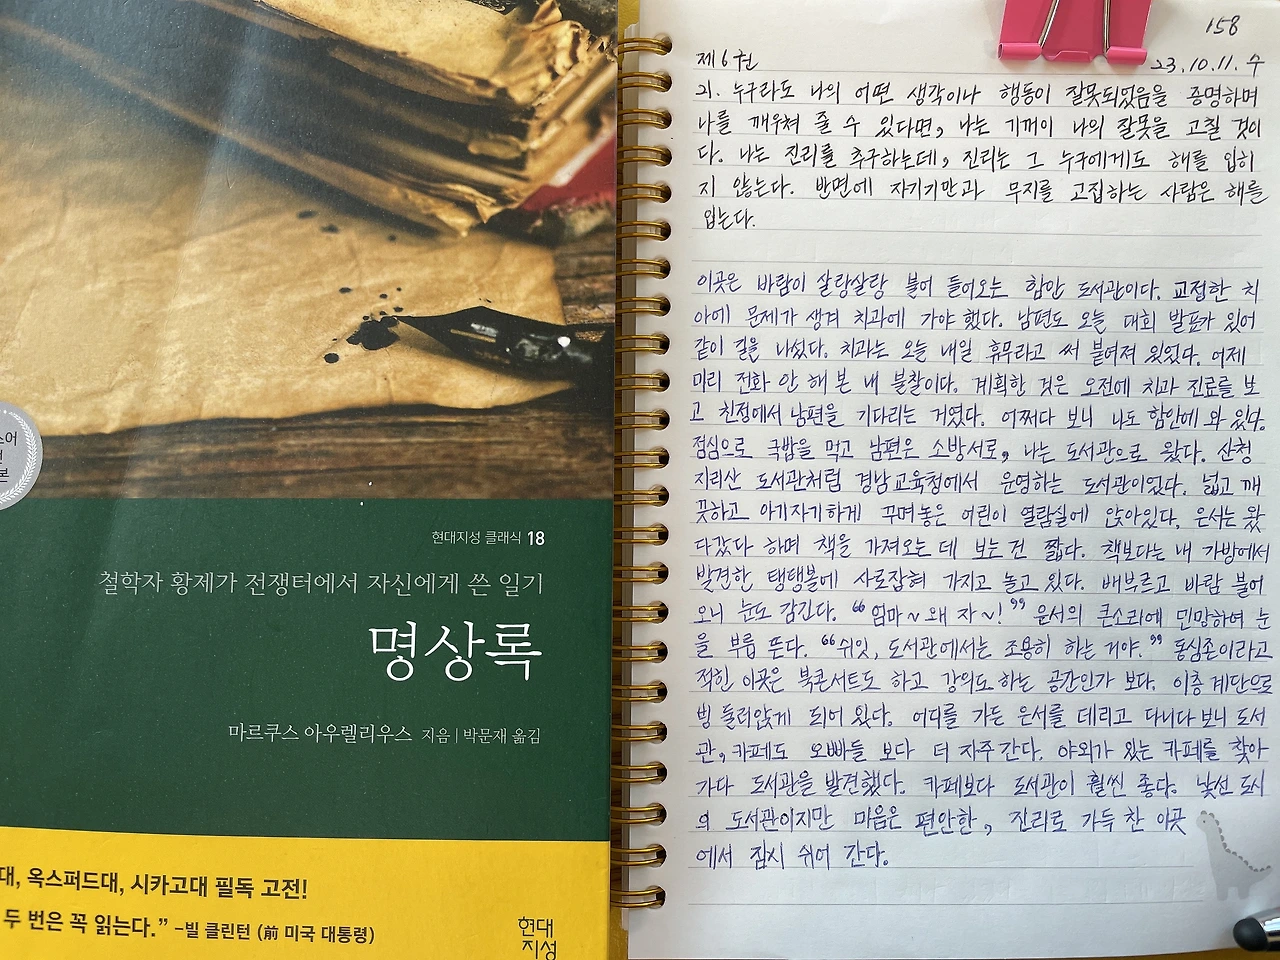 스어
본
현대지성 클래식 18
철학자 황제가 전쟁터에서 자신에게 쓴 일기
명상록
마르쿠스 아우렐리우스 지음 | 박문재 옮김
대, 옥스퍼드대, 시카고대 필독 고전!
두 번은 꼭 읽는다.” –빌 클린턴 (前 미국 대통령)
현대
지성
158
제6권 23.10.11. 수
21. 누구라도 나의 어떤 생각이나 행동이 잘못되었음을 증명하며
나를 깨우쳐 줄 수 있다면, 나는 기꺼이 나의 잘못을 고칠 것이
다. 나는 진리를 추구하는데, 진리는 그 누구에게도 해를 입히
지 않는다. 반면에 자기기만과 무지를 고집하는 사람은 해를
입는다.
이곳은 바람이 살랑살랑 불어 들어오는 함안 도서관이다. 교정한 치
아에 문제가 생겨 치과에 가야 했다. 남편도 오늘 대회 발표가 있어
같이 길을 나섰다. 치과는 오늘 내일 휴무라고 써 붙여져 있었다. 어제
미리 전화 안 해 본 내 불찰이다. 계획한 것은 오전에 치과 진료를 보
고 친정에서 남편을 기다리는 거였다. 어쩌다 보니 나도 함안에 와 있다.
점심으로 국밥을 먹고 남편은 소방서로, 나는 도서관으로 왔다. 산청
지리산 도서관처럼 경남교육청에서 운영하는 도서관이었다. 넓고 깨
끗하고 아기자기하게 꾸며놓은 어린이 열람실에 앉아있다. 은서는 왔
다갔다 하며 책을 가져오는 데 보는 건 짧다. 책보다는 내 가방에서
발견한 탱탱볼에 사로잡혀 가지고 놀고 있다. 배부르고 바람 불어
오니 눈도 감긴다. “엄마~ 왜 자~!” 은서의 큰소리에 민망하여 눈
을 부릅 뜬다. “쉬잇, 도서관에서는 조용히 하는 거야.” 동심존이라고
적힌 이곳은 북콘서트도 하고 강의도 하는 공간인가 보다. 이층 계단으로
빙 둘러앉게 되어 있다. 어디를 가든 은서를 데리고 다니다 보니 도서
관, 카페도 오빠들 보다 더 자주 간다. 야외가 있는 카페를 찾아
가다 도서관을 발견했다. 카페보다 도서관이 훨씬 좋다. 낯선 도시
의 도서관이지만 마음은 편안한, 진리로 가득 찬 이곳
에서 잠시 쉬어 간다.